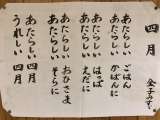 四月
金子みすゞ
あたらしい ごほん
あたらしい かばんに
あたらしい はっぱ
あたらしい えだに
あたらしい おひさま
あたらしい そらに
あたらしい 四月
うれしい 四月